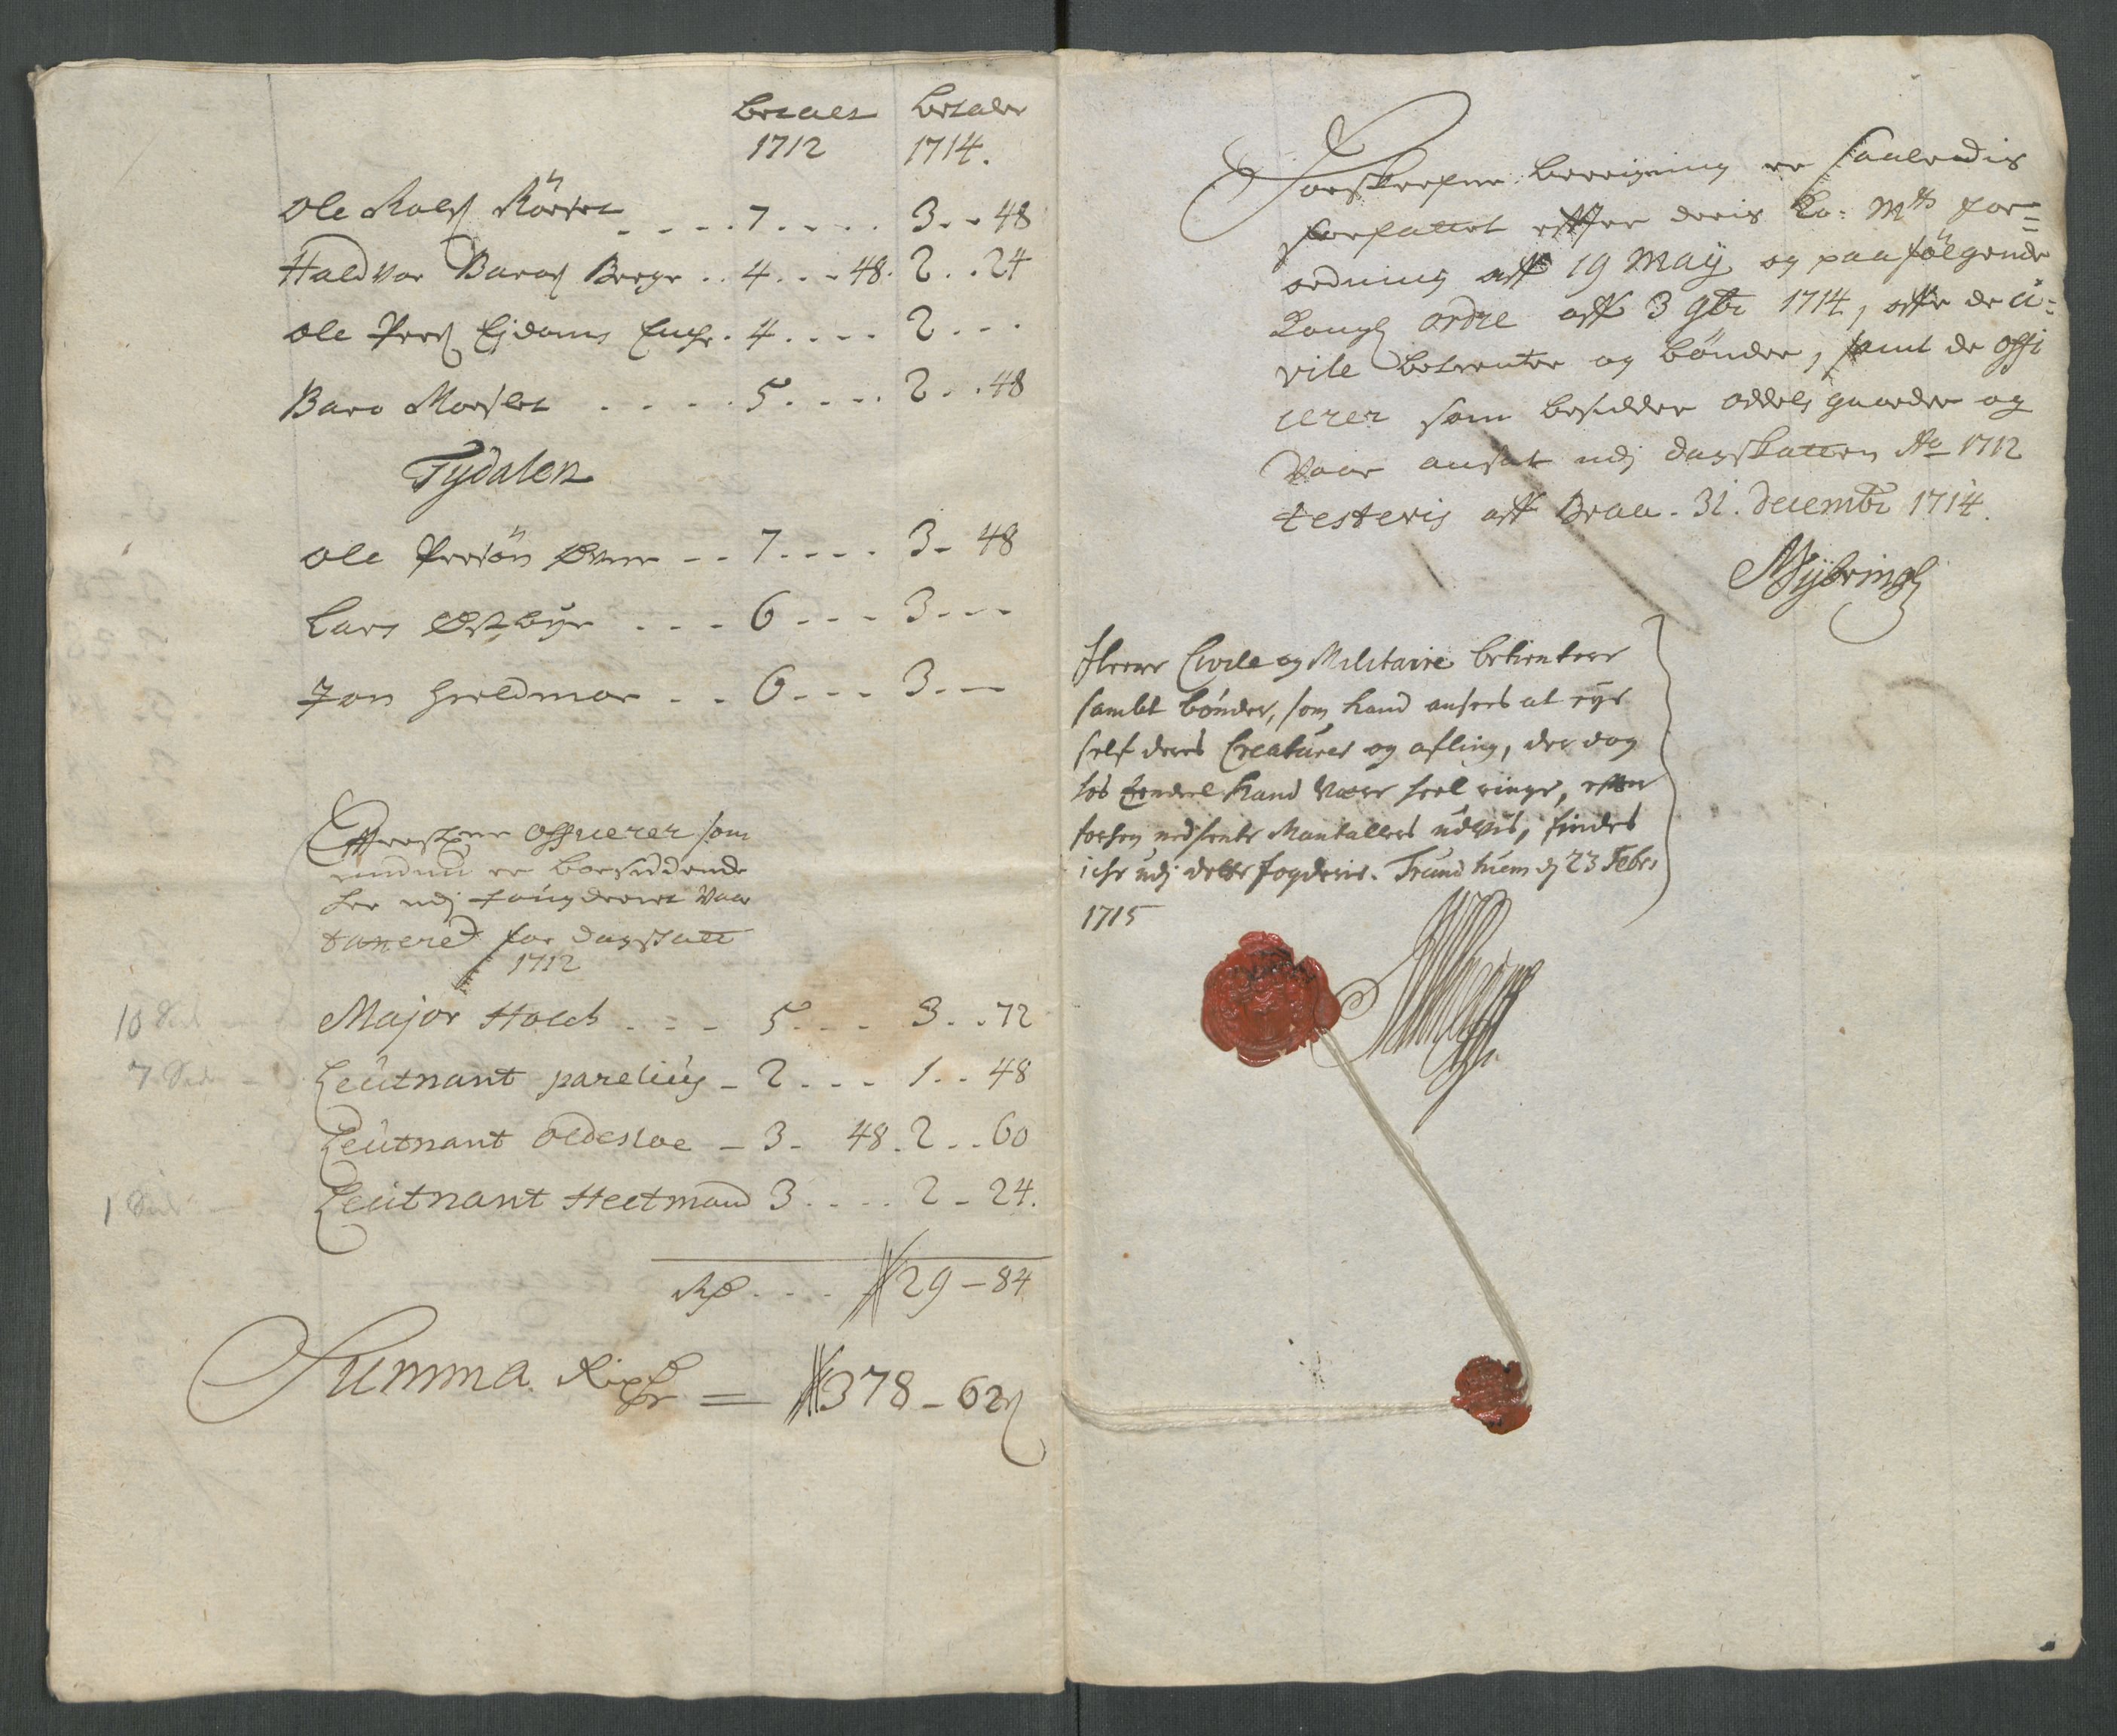 betalt betaler
1712 1714.
Ole Rolss Röeset - - - - 7 - - - - 3 - - 48
Haldvor Baros Berge - - 4 - - - 48. 2 - - 24
Ole Pers Ejdams Enche. 4 - - - - 2 - - -
Baro Morslet - - - - - 5 - - - - 2 - - 48
Tydalen
Ole Persön Øvne - - 7 - - - - 3 - 48
Lars Østbye - - - 6 - - - 3 - - -
Jon Græsmoe - - 6 - - - 3 - - -
Effterskrefne Officerer som
endnu er boesiddende
her udj fougderiet vaar
taxered for dagskatt
1712
10
Major Holch - - - - 5 - - - 3 - - 72
7
Leütnant parelius - 2 - - - - 1 - - 48
Leütnant Oldesloe - 3 - 48. 2 - - 60
1
Leütnant Heetmand 3 - - - - 2 - 24.
Rdr - - - 29 - 84
Summa Rixdr = 378 - 62
Forskrefne beregning er saaledis
forfattet effter deris Ko: Mtts for=
ordning aff 19 May og paafølgende
Kongl ordre aff 3 9br 1714, offr de Ci=
vile betienter og bönder, samt de offi
cerer som besidder oddels gaarder og
vaar ansat udj dagskatten Ao 1712
testeris aff Braa. 31. decembr 1714.
Nysbringh
Fleere Civile og Militaire betientere
samt bönder, som kand ansees at eye
self deris Creaturer og afling, der dog
hos Eendeel kand være heel ringe, efter
forhen nedsente Mantallers udviis, findes
iche udj dette fogderie. Trundhiem d 23 Febr:
1715